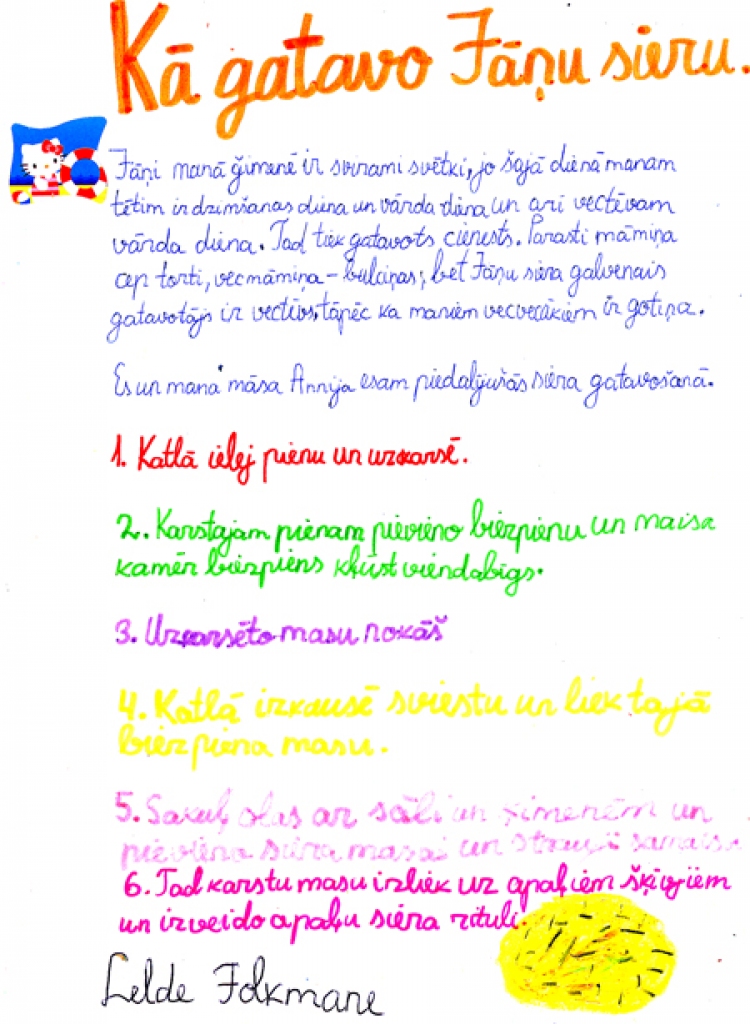 Kā gatavo Jāņu sieru.
Jāņi manā ģimenē ir svinami svētki, jo šajā dienā manam
tētim ir dzimšanas diena un vārda diena un arī vectēvam
vārda diena. Tad tiek gatavots cienests. Parasti māmiņa
cep torti, vecmāmiņa - bulciņas, bet Jāņu siera galvenais
gatavotājs ir vectēvs, tāpēc ka maniem vecvecākiem ir gotiņa.
Es un mana māsa Annija esam piedalījušās siera gatavošanā.
1. Katlā ielej pienu un uzkarsē.
2. Karstajam pienam pievieno biezpienu un maisa
kamēr biezpiens kļūst viendabīgs.
3. Uzkarsēto masu nokāš
4. Katlā izkausē sviestu un liek tajā
biezpiena masu.
5. Sakuļ olas ar sāli un ķimenēm un
pievieno siera masai un strauji samaisa
6. Tad karstu masu izliek uz apaļiem šķīvjiem
un izveido apaļu siera rituli.
Lelde Folkmane